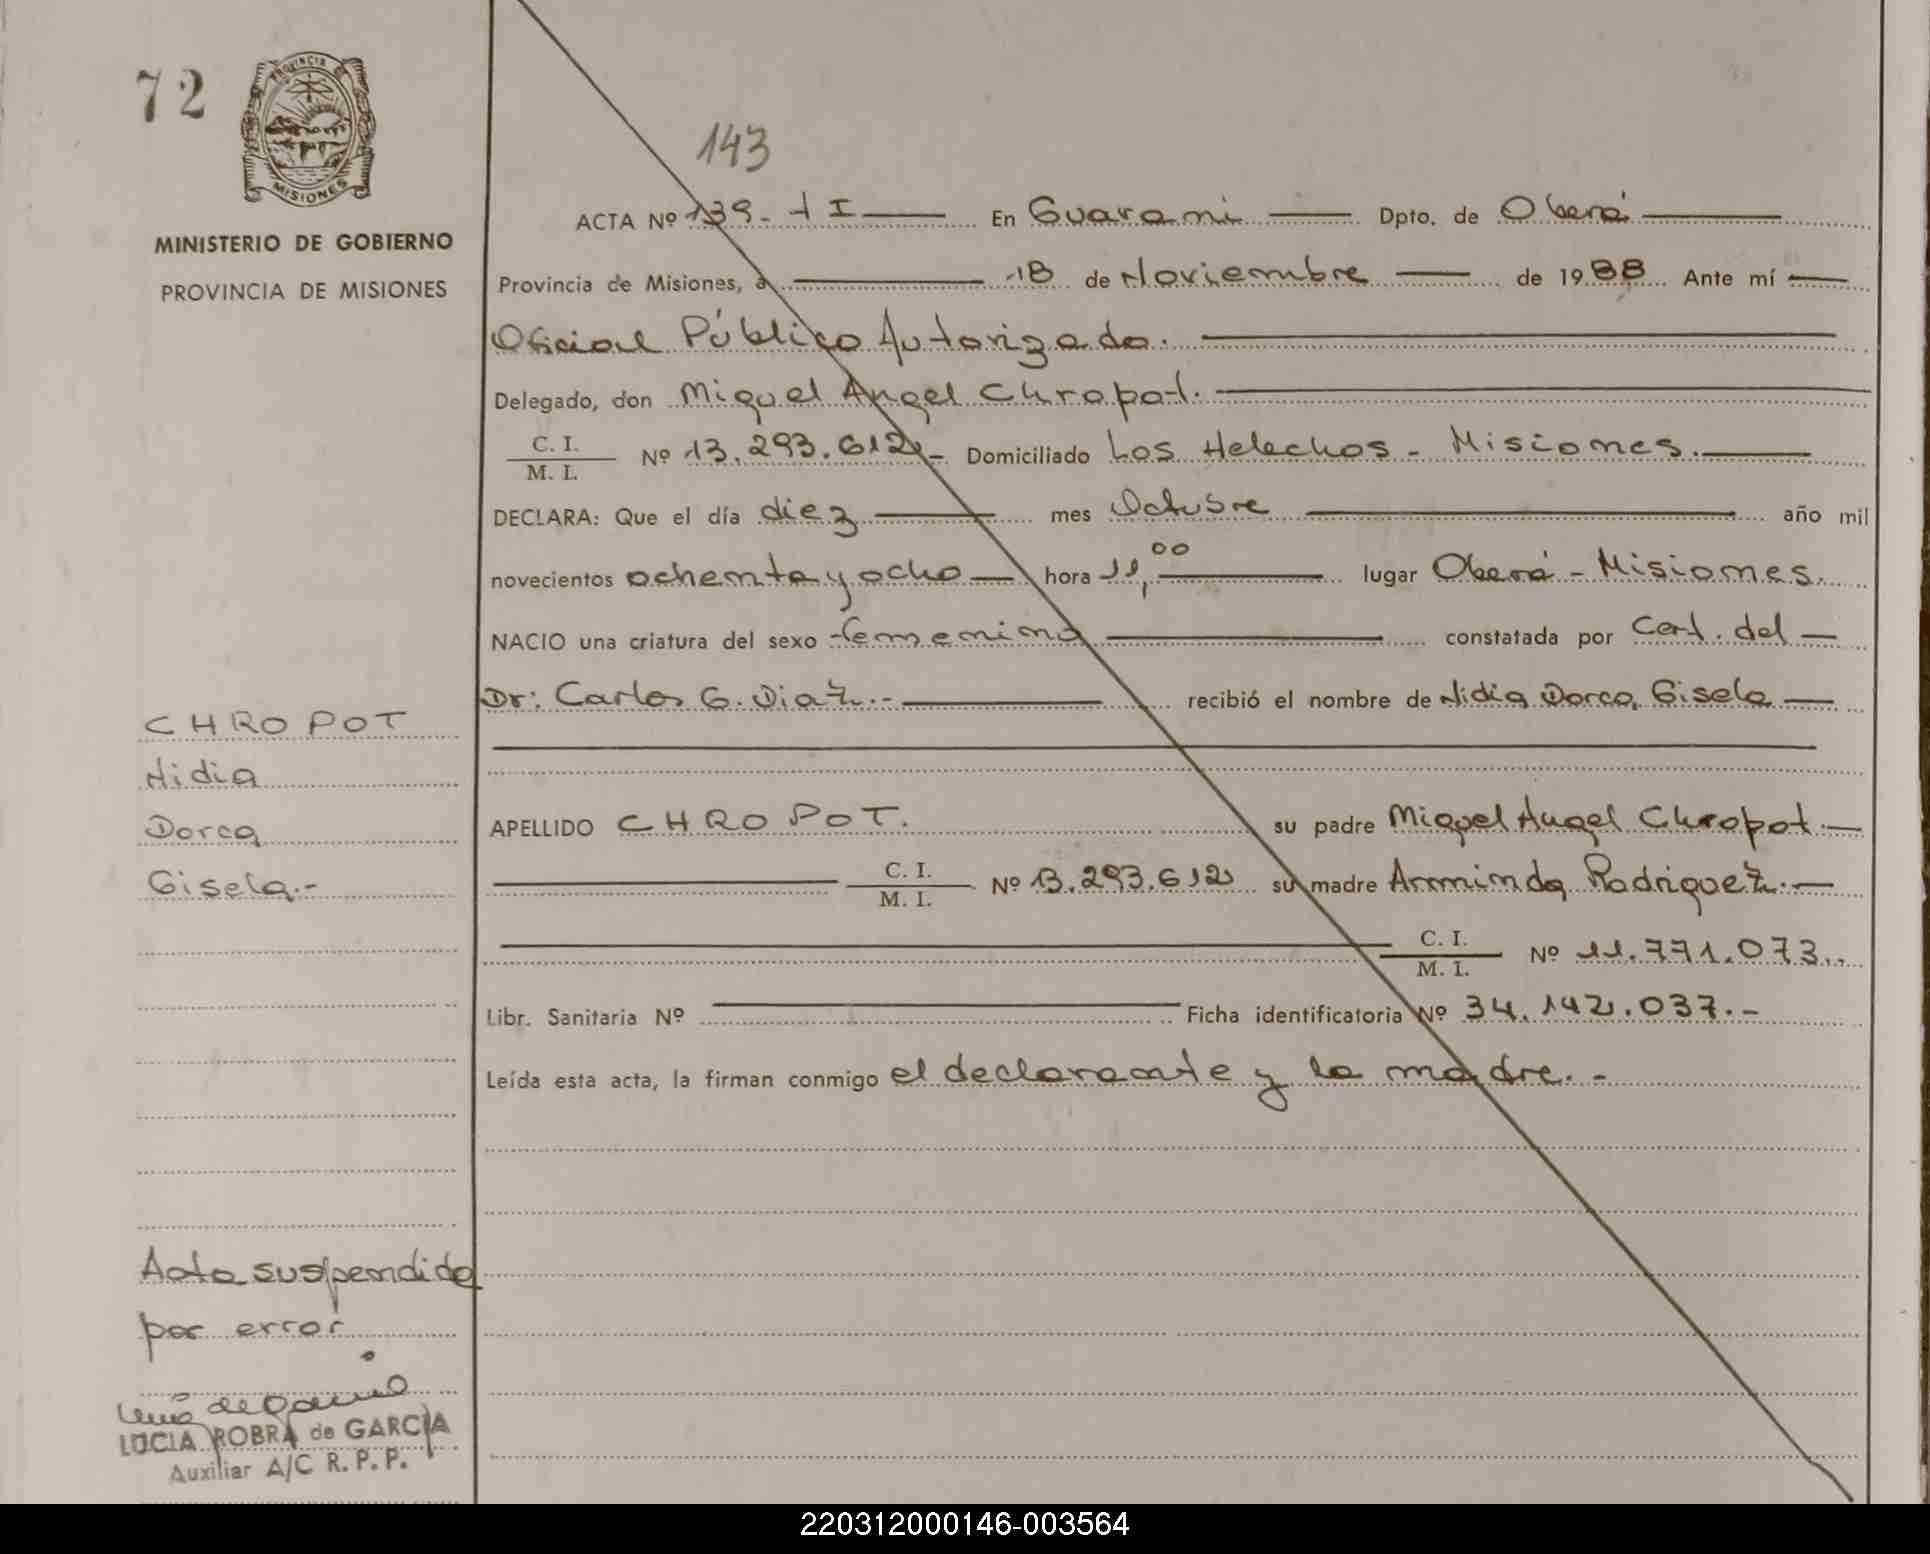 72
PROVINCIA DE
MISIONES
MINISTERIO DE GOBIERNO
PROVINCIA DE MISIONES
CHROPOT
Nidia
Dorca
Gisela.-
Acta suspendida
por error
LUCIA ROBRA de GARCIA
Auxiliar A/C R. P. P.
143
ACTA Nº 139. - t I En Guarani Dpto. de Oberá
Provincia de Misiones, a 18 de Noviembre de 1988 Ante mí
Oficial Público Autorizado.
Delegado, don Miguel Angel Chropot.
C. I.
M. I. Nº 13.293.612- Domiciliado Los Helechos - Misiones.
DECLARA: Que el día diez mes Octubre año mil
novecientos ochenta y ocho hora 11,00 lugar Oberá - Misiones.
NACIO una criatura del sexo femenino constatada por Cert. del
Dr: Carlos G. Diaz.- recibió el nombre de Nidia Dorca, Gisela
APELLIDO CHROPOT. su padre Miguel Angel Chropot.
C. I.
M. I. Nº 13.293.612 su madre Arminda Rodriguez.
C. I.
M. I. Nº 11.771.073..
Libr. Sanitaria Nº Ficha identificatoria Nº 34.142.037.-
Leída esta acta, la firman conmigo el declarante y la madre.-
220312000146-003564